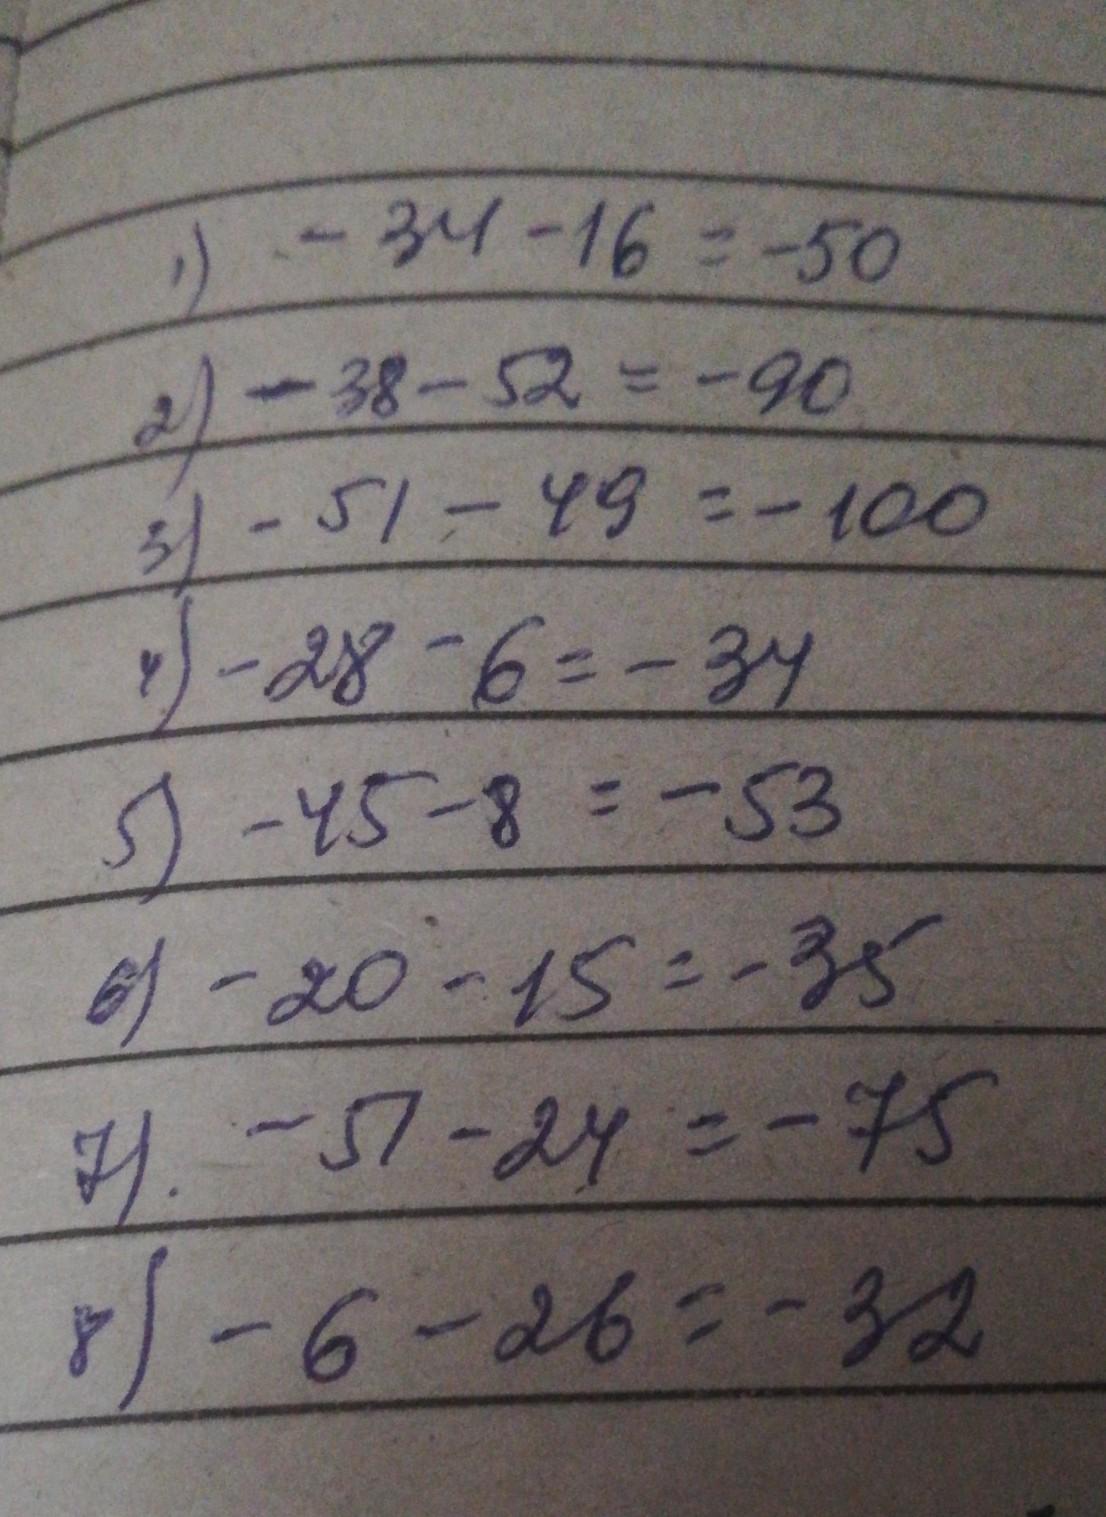 1) - 34 - 16 = -50
2) - 38 - 52 = - 90
3) - 51 - 49 = - 100
4) - 28 - 6 = - 34
5) - 45 - 8 = - 53
6) - 20 - 15 = - 35
7). - 51 - 24 = - 75
8) - 6 - 26 = - 32